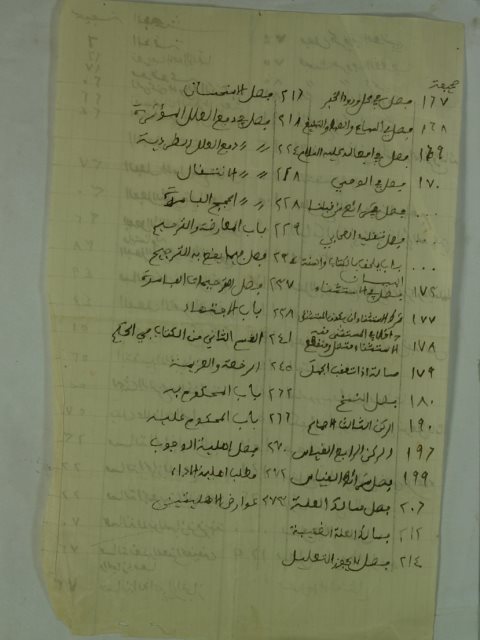 صحيفة
١٦٧ فصل في محل ورود الخبر
١٦٨ فصل في السماع والضبط والتبليغ
١٦٩ فصل في افعاله عليه السلام
١٧٠ فصل في الوحي
... فصل في شرائع من قبلنا
فصل تقليد الصحابي
... باب يلحق بالكتاب والسنة البيان
١٧٤ فصل في الاستثناء
١٧٧ شرط الاستثناء ان يكون المستثنى
١٧٨ الاستثناء متصل ومنقطع
١٧٩ مسألة اذا تعقب الجمل
١٨٠ فصل النسخ
١٩٠ الركن الثالث الاجماع
١٩٦ الركن الرابع القياس
١٩٩ فصل شرائط القياس
٢٠٦ فصل مسألة العلة
٢١٢ مسألة العلة
٢١٤ فصل لا يجوز التعليل
٢١٦ فصل الاستحسان
٢١٨ فصل في دفع العلل المؤثرة
٢٢٤ // // دفع العلل الطردية
٢٢٨ // // الانتقال
٢٢٨ // // الحجج الفاسدة
٢٢٩ باب المعارضة والترجيح
فصل فيما يقع به الترجيح
٢٣٧ فصل الترجيحات الفاسدة
٢٣٨ باب الاجتهاد
٢٤١ القسم الثاني من الكتاب في الحكم
٢٤٥ الرخصة والعزيمة
٢٦٢ باب المحكوم به
٢٦٦ باب المحكوم عليه
٢٧٠ فصل اهلية الوجوب
٢٧٢ مطلب اهلية الاداء
٢٧٣ عوارض الاهليتين